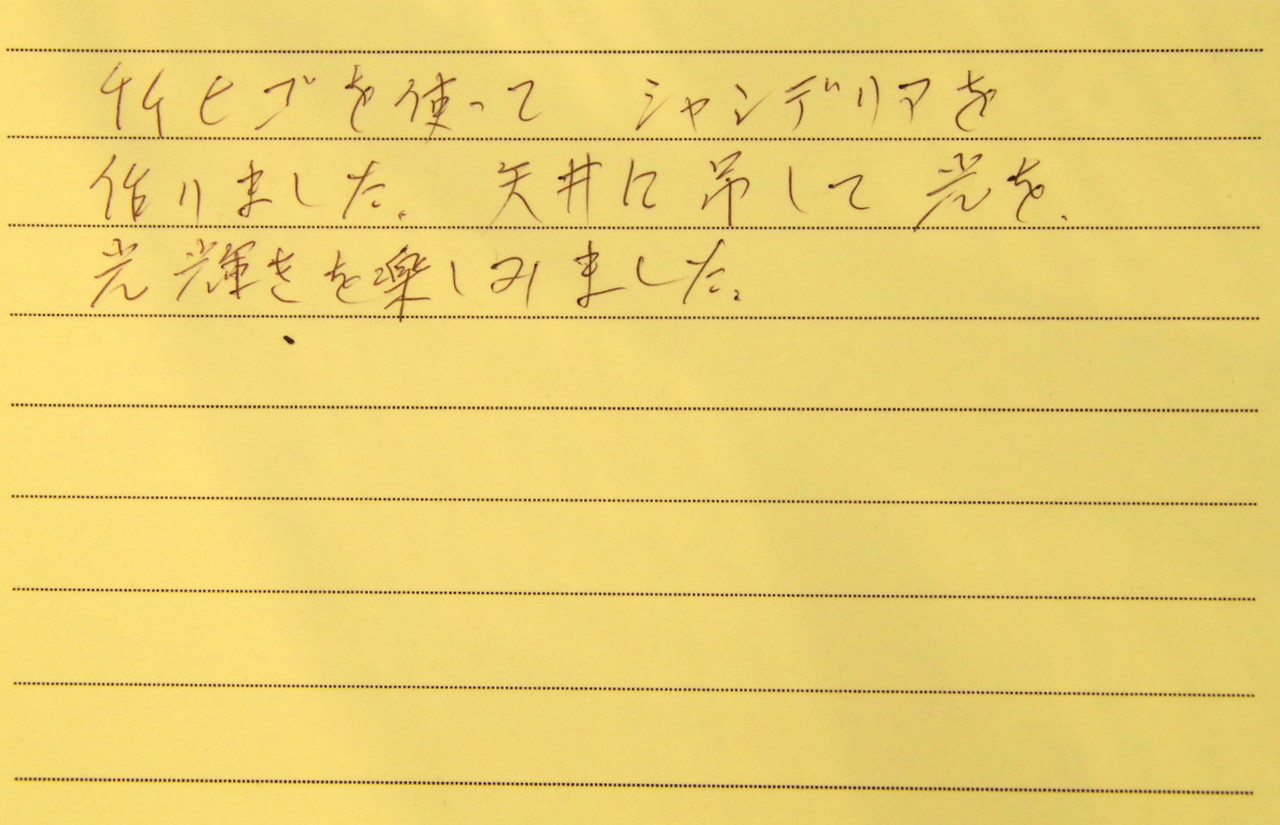 竹ヒゴを使って シャンデリアを
作りました。 天井に吊して 光を.
光輝きを楽しみました。